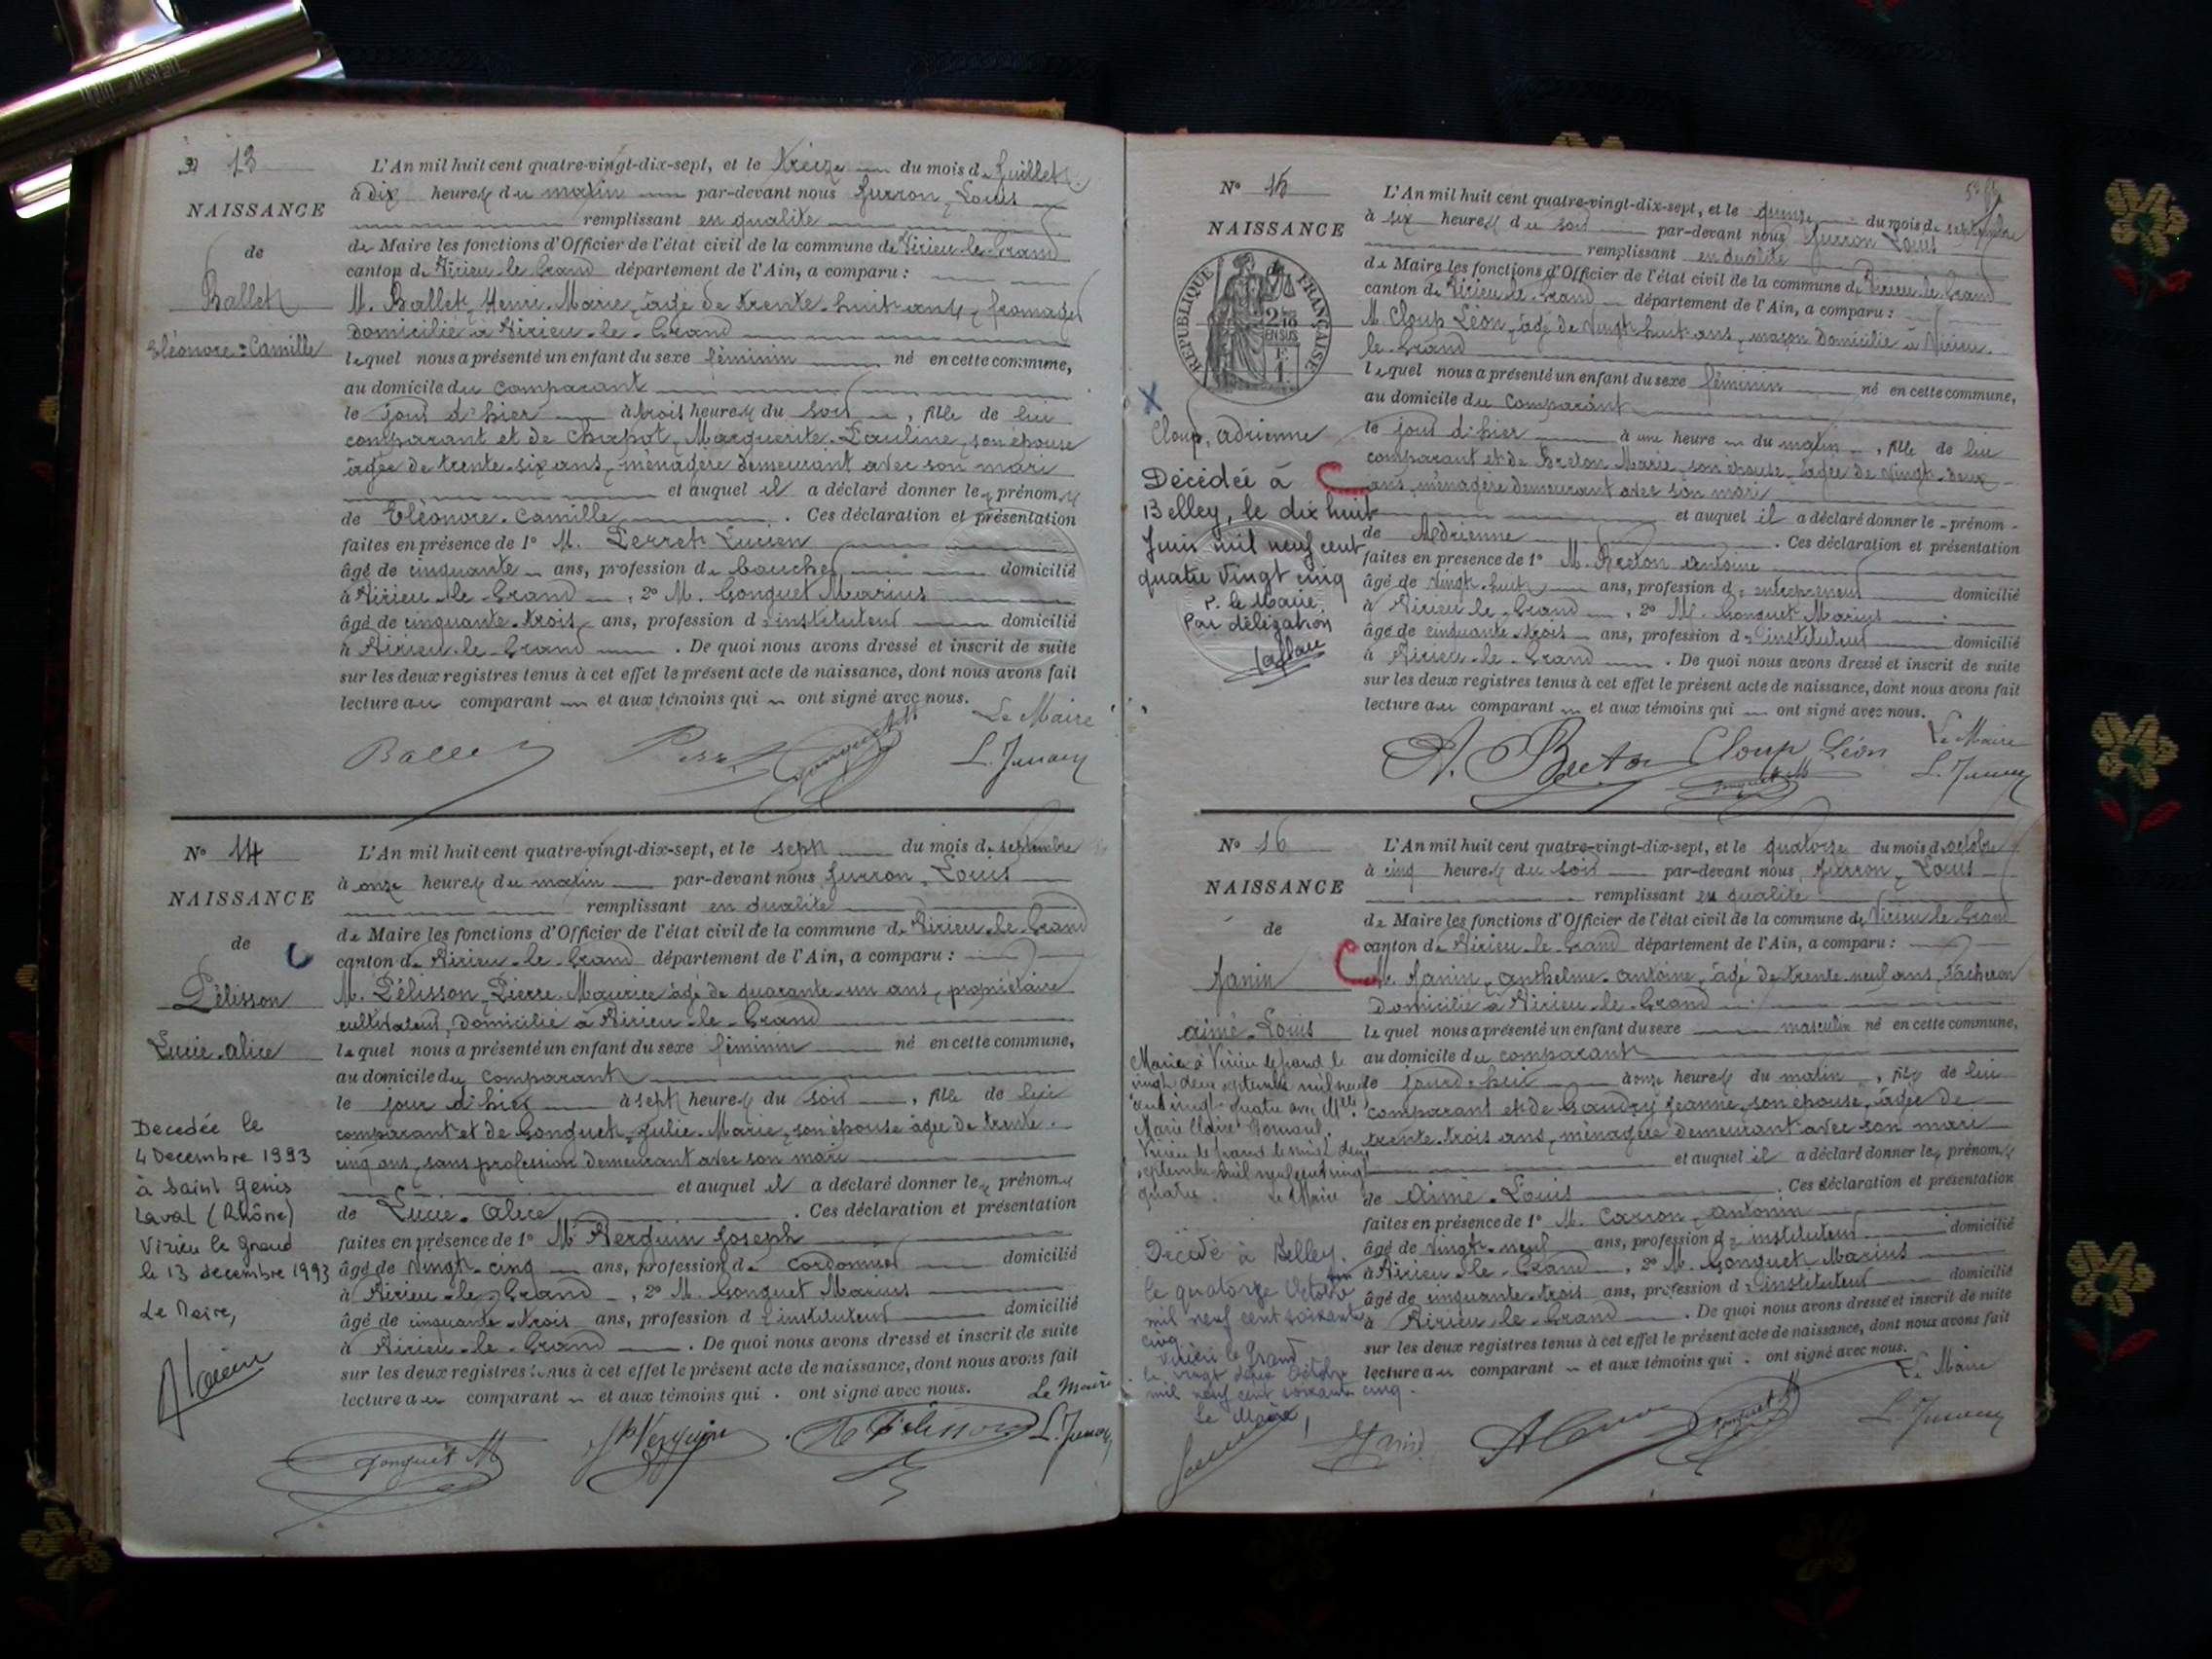 13
NAISSANCE
de
Ballet
Eléonore-Camille
L'An mil huit cent quatre-vingt-dix-sept, et le treize du mois de Juillet
à dix heures du matin par-devant nous Jurron, Louis
remplissant en qualité
de Maire les fonctions d'Officier de l'état civil de la commune de Virieu-le-Grand
canton de Virieu-le-Grand département de l'Ain, a comparu :
M. Ballet, Henri-Marie, âgé de trente-huit ans, fromager
domicilié à Virieu-le-Grand
lequel nous a présenté un enfant du sexe féminin né en cette commune,
au domicile du comparant
le jour d'hier à trois heures du soir, fille de lui
comparant et de Chapot, Marguerite-Pauline, son épouse
âgée de trente-six ans, ménagère demeurant avec son mari
et auquel il a déclaré donner les prénoms
de Eléonore-Camille. Ces déclaration et présentation
faites en présence de 1° M. Perret Lucien
âgé de cinquante ans, profession de boucher domicilié
à Virieu-le-Grand, 2° M. Gonguet Marius
âgé de cinquante-trois ans, profession d'instituteur domicilié
à Virieu-le-Grand. De quoi nous avons dressé et inscrit de suite
sur les deux registres tenus à cet effet le présent acte de naissance, dont nous avons fait
lecture au comparant et aux témoins qui ont signé avec nous.
Le Maire
Ballet
N° 14
NAISSANCE
de
Pélisson
Lucie-Alice
Decedée le
4 Decembre 1993
à Saint Genis
Laval (Rhône)
Virieu le Grand
le 13 decembre 1993
Le Maire,
L'An mil huit cent quatre-vingt-dix-sept, et le sept du mois de septembre
à onze heures du matin par-devant nous Jurron, Louis
remplissant en qualité
de Maire les fonctions d'Officier de l'état civil de la commune de Virieu-le-Grand
canton de Virieu-le-Grand département de l'Ain, a comparu :
M. Pélisson, Pierre-Maurice âgé de quarante-un ans, propriétaire
cultivateur, domicilié à Virieu-le-Grand
lequel nous a présenté un enfant du sexe féminin né en cette commune,
au domicile du comparant
le jour d'hier à sept heures du soir, fille de lui
comparant et de Gonguet, Julie-Marie, son épouse âgée de trente-
cinq ans, sans profession demeurant avec son mari
et auquel il a déclaré donner les prénoms
de Lucie-Alice. Ces déclaration et présentation
faites en présence de 1° M. Verguin Joseph
âgé de vingt-cinq ans, profession de cordonnier domicilié
à Virieu-le-Grand, 2° M. Gonguet Marius
âgé de cinquante-trois ans, profession d'instituteur domicilié
à Virieu-le-Grand. De quoi nous avons dressé et inscrit de suite
sur les deux registres tenus à cet effet le présent acte de naissance, dont nous avons fait
lecture au comparant et aux témoins qui ont signé avec nous.
Le Maire
Gonguet M Verguin Pélisson
N° 15
NAISSANCE
de
RÉPUBLIQUE FRANÇAISE
Cloup, Adrienne
Décédée à
Belley, le dix huit
Juin mil neuf cent
quatre vingt cinq
P. le Maire
Par délégation
L'An mil huit cent quatre-vingt-dix-sept, et le quinze du mois de septembre
à six heures du soir par-devant nous Jurron Louis
remplissant en qualité
de Maire les fonctions d'Officier de l'état civil de la commune de Virieu-le-Grand
canton de Virieu-le-Grand département de l'Ain, a comparu :
M. Cloup Léon, âgé de vingt-huit ans, maçon domicilié à Virieu-
le-Grand
lequel nous a présenté un enfant du sexe féminin né en cette commune,
au domicile du comparant
le jour d'hier à une heure du matin, fille de lui
comparant et de Breton Marie, son épouse, âgée de vingt-deux
ans, ménagère demeurant avec son mari
et auquel il a déclaré donner le prénom
de Adrienne. Ces déclaration et présentation
faites en présence de 1° M. Breton Antoine
âgé de vingt-huit ans, profession d'entrepreneur domicilié
à Virieu-le-Grand, 2° M. Gonguet Marius
âgé de cinquante-trois ans, profession d'instituteur domicilié
à Virieu-le-Grand. De quoi nous avons dressé et inscrit de suite
sur les deux registres tenus à cet effet le présent acte de naissance, dont nous avons fait
lecture au comparant et aux témoins qui ont signé avec nous.
Le Maire
A. Breton Cloup Léon
N° 16
NAISSANCE
de
Janin
Aimé-Louis
Marié à Virieu le grand le
vingt deux septembre mil neuf
cent vingt quatre avec Melle
Marie Claire
Virieu le grand le vingt deux
septembre mil neuf cent vingt
quatre. Le Maire
Décédé à Belley
le quatorze Octobre
mil neuf cent soixante
cinq
Virieu le Grand
le vingt deux Octobre
mil neuf cent soixante cinq.
Le Maire,
L'An mil huit cent quatre-vingt-dix-sept, et le quatorze du mois d'octobre
à cinq heures du soir par-devant nous Jurron, Louis
remplissant en qualité
de Maire les fonctions d'Officier de l'état civil de la commune de Virieu-le-Grand
canton de Virieu-le-Grand département de l'Ain, a comparu :
M. Janin, Anthelme-Antoine, âgé de trente-neuf ans, vacheron
domicilié à Virieu-le-Grand
lequel nous a présenté un enfant du sexe masculin né en cette commune,
au domicile du comparant
le jourd'hui à onze heures du matin, fils de lui
comparant et de Gaudry Jeanne, son épouse, âgée de
trente-trois ans, ménagère demeurant avec son mari
et auquel il a déclaré donner les prénoms
de Aimé-Louis. Ces déclaration et présentation
faites en présence de 1° M. Carron, Antonin
âgé de vingt-neuf ans, profession d'instituteur domicilié
à Virieu-le-Grand, 2° M. Gonguet Marius
âgé de cinquante-trois ans, profession d'instituteur domicilié
à Virieu-le-Grand. De quoi nous avons dressé et inscrit de suite
sur les deux registres tenus à cet effet le présent acte de naissance, dont nous avons fait
lecture au comparant et aux témoins qui ont signé avec nous.
Le Maire
Janin